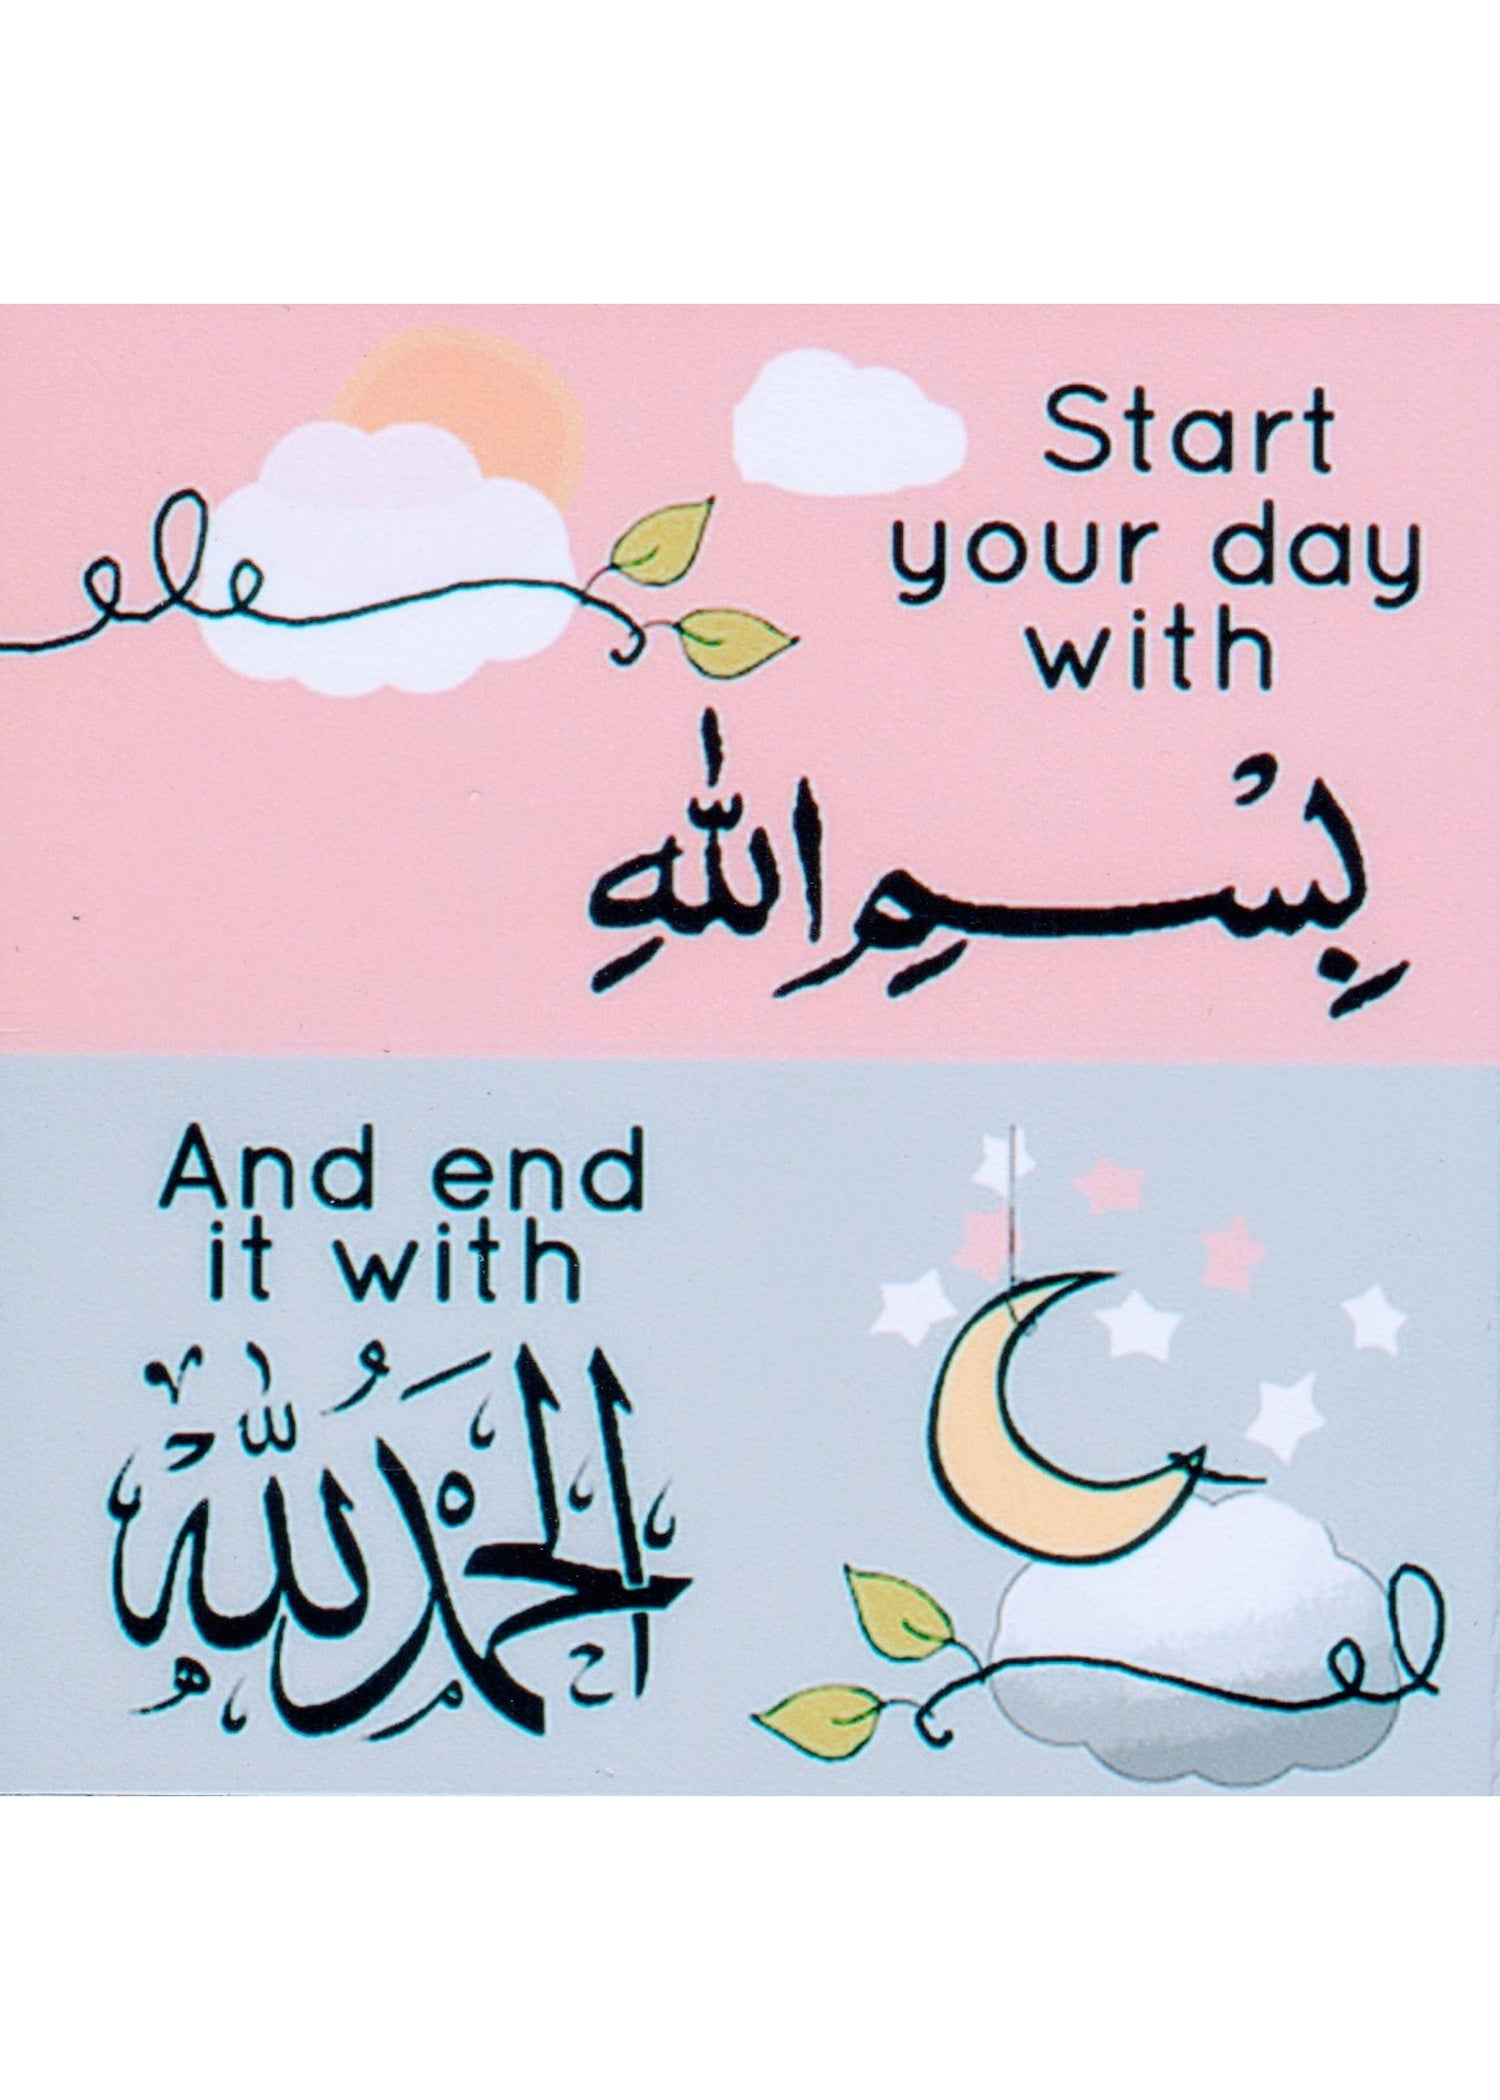 Start
your day
with
بِسْمِ اللّٰهِ
And end
it with
الحَمْدُ لِلّٰه